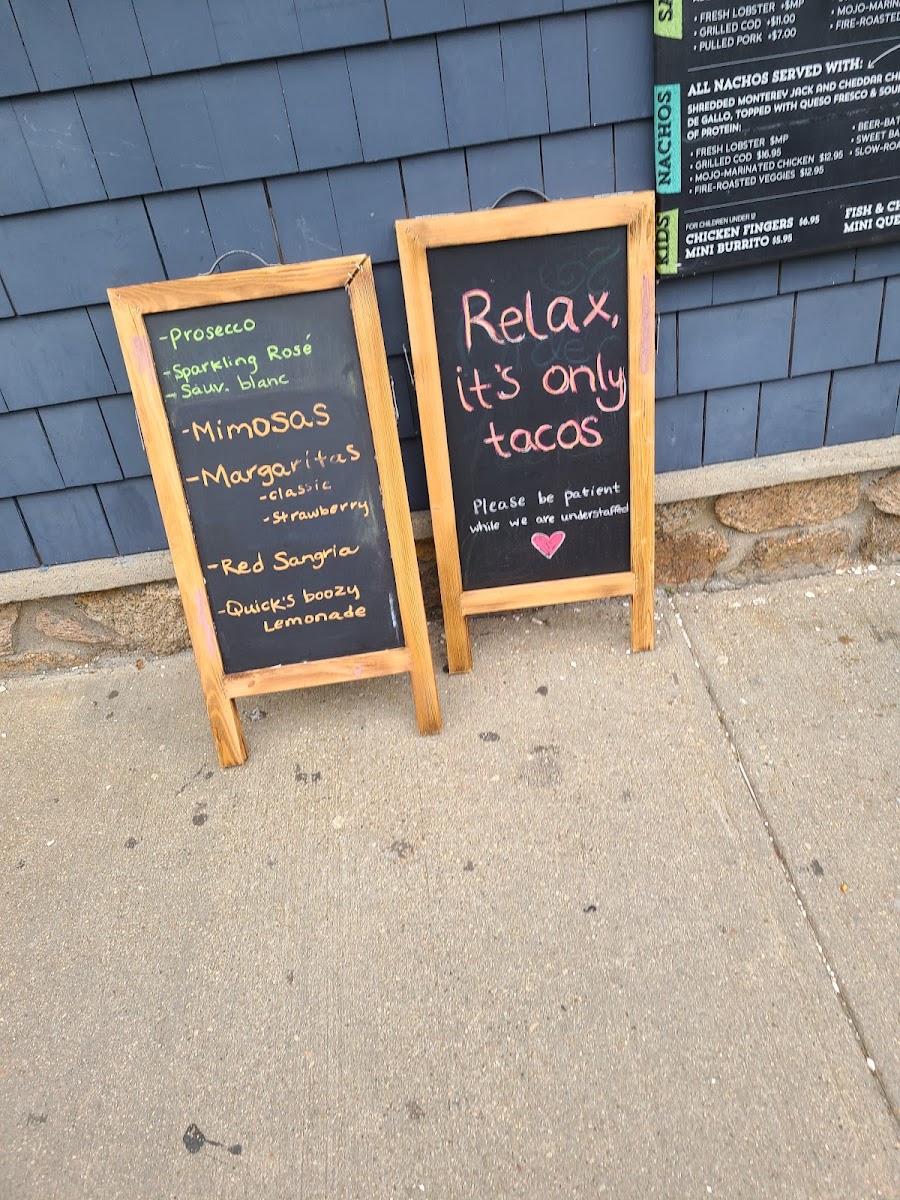 -Prosecco
-Sparkling Rosé
-Sauv. blanc
-Mimosas
-Margaritas
-classic
-strawberry
-Red Sangria
-Quick's boozy
Lemonade
Relax,
it's only
tacos
Please be patient
while we are understaffed
• FRESH LOBSTER +$MP
• GRILLED COD +$11.00
• PULLED PORK +$7.00
• MOJO-MARIN
• FIRE-ROASTED
NACHOS
ALL NACHOS SERVED WITH:
SHREDDED MONTEREY JACK AND CHEDDAR CH
DE GALLO, TOPPED WITH QUESO FRESCO & SOU
OF PROTEIN:
• FRESH LOBSTER $MP
• GRILLED COD $16.95
• MOJO-MARINATED CHICKEN $12.95
• FIRE-ROASTED VEGGIES $12.95
• BEER-BAT
• SWEET BA
• SLOW-ROA
KIDS
FOR CHILDREN UNDER 12
CHICKEN FINGERS $6.95
MINI BURRITO $5.95
FISH & CH
MINI QUE